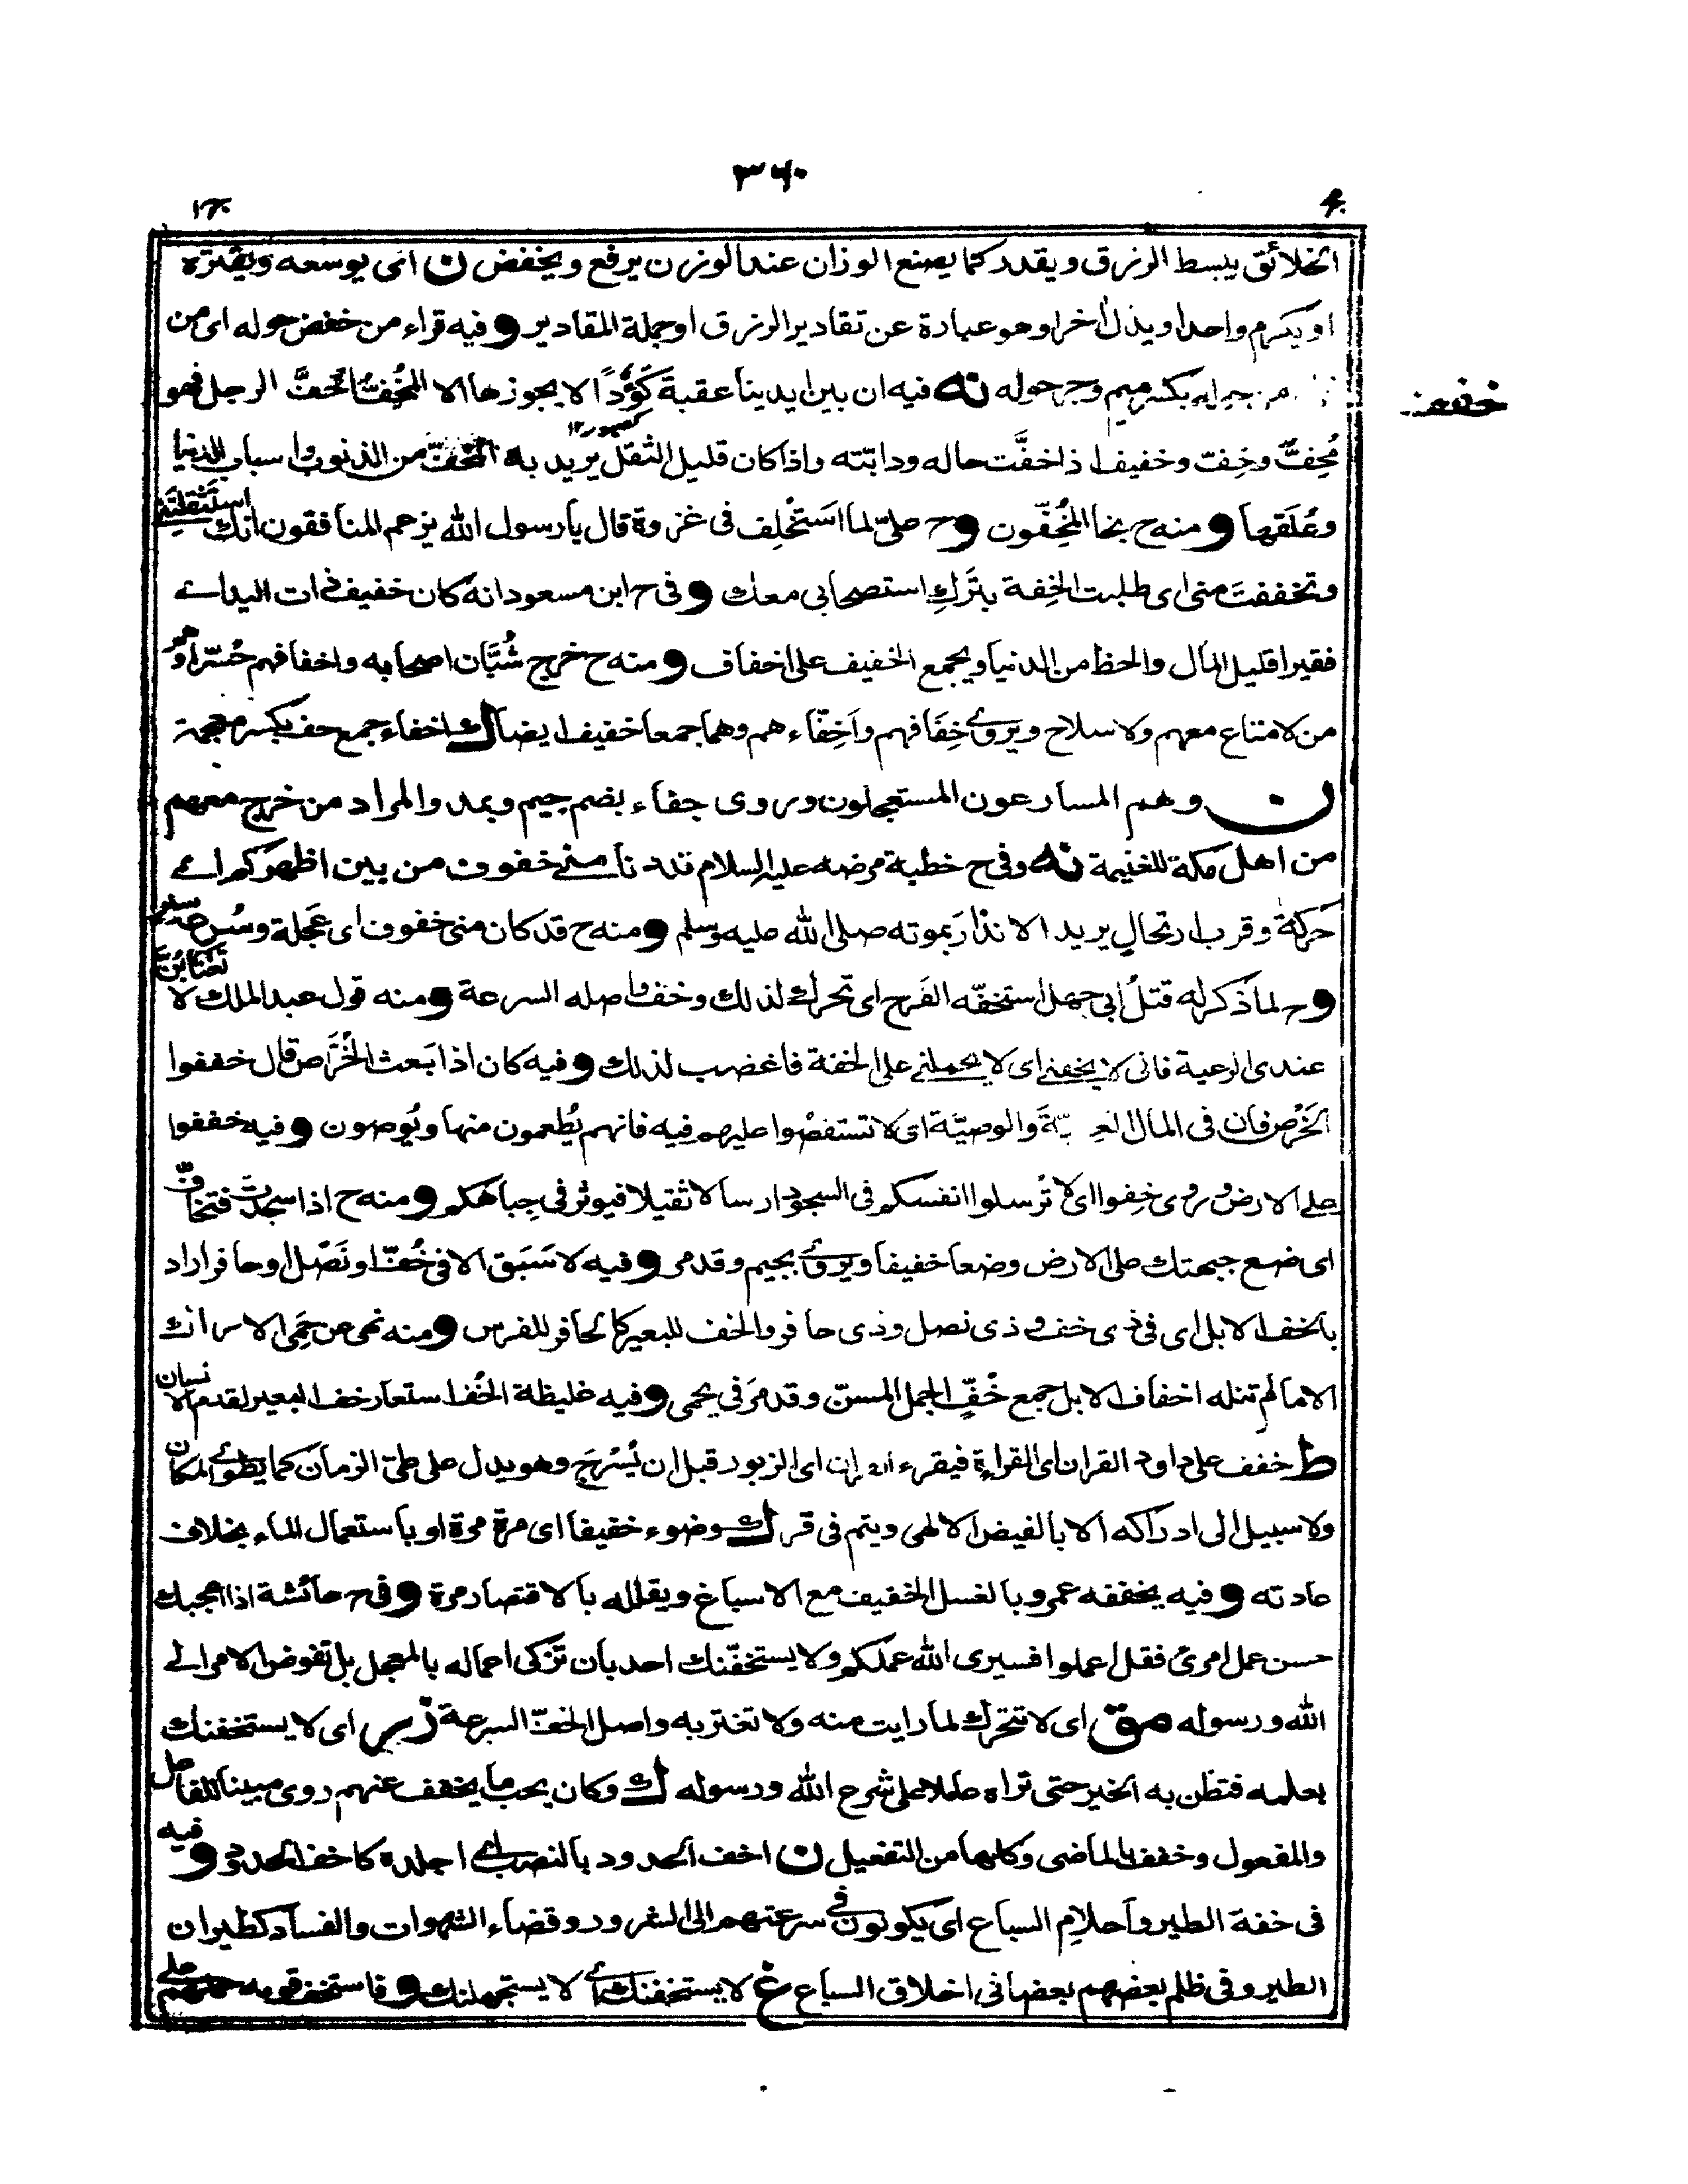 ٣٦٠
الخلائق يبسط الرزق ويقدر كما يصنع الوزان عند الوزن يرفع ويخفض ن اى يوسعه ويقتره
او يكرم واحدا ويذل اخر او هو عبارة عن تقادير الرزق او جملة المقادير و فيه قراء من خفض حوله اى من
بكسر ميم وجر حوله نه فيه ان بين ايدينا عقبة كَؤُدًا لا يجوزها الا المُخِفّ اخفَّ الرجل فهو
خفف
كصبور ١٢
مُخِفّ وخِفّ وخفيف اذا خفَّت حاله ودابته واذا كان قليل الثقل يريد به المُخِفّ من الذنوب واسباب الدنيا
وعُلَقها و منه ح نجا المُخِفّون و ح علىّ لما استَخْلِف فى غزوة قال يا رسول الله يزعم المنافقون انك استَثْقلتَنى
وتخففتَ منى اى طلبت الخِفة بتَركِ استصحابى معك و فى ح ابن مسعود انه كان خفيف ذات اليد اے
فقيرا قليل المال والحظ من الدنيا ويجمع الخفيف على اخفاف و منه ح خرج شُبَّان اصحابه واخفافهم حُسّرا وهم
من لا متاع معهم ولا سلاح ويروى خِفَافهم واَخِفّاءهم وهما جمعا خفيف ايضا ك اخفاء جمع خف بكسر معجمة
ن وهم المسارعون المستعجلون وروى جفاء بضم جيم وبمد والمراد من خرج معهم
من اهل مكة للغنيمة نه وفى ح خطبة مرضه عليه السلام قد دنا منى خفوف من بين اظهركم اے
حَركةٌ وقرب ارتحالٍ يريد الانذارَ بموته صلى الله عليه وسلم و منه ح قد كان منى خفوف اى عَجَلة وسُرعة سير
و ح لما ذكر له قتلُ ابى جهل استخفّه الفَرح اى تحرك لذلك وخف واصله السرعة و منه قول عبد الملك لا تغتابُنّ
عندى الرعية فانى لا يخفنى اى لا يحملنى على الخفة فاغضب لذلك و فيه كان اذا بَعث الخُرَّاص قال خففوا
الخَرْص فان فى المال العريّةَ والوصيّة اى لا تستقصُوا عليهم فيه فانهم يُطعمون منها ويُوصون و فيه خففوا
على الارض وروى خِفوا اى لا تُرسلوا انفسكم فى السجود ارسالا ثقيلا فيوثر فى جِباهكم و منه ح اذا سجدتَ فتخافّ
اى ضع جبهتك على الارض وضعا خفيفا ويروى بجيم وقد مر و فيه لا سَبَق الا فى خُفّ او نَصْل او حافر اراد
بالخف الابل اى فى ذى خف و ذى نصل وذى حافر والخف للبعير كالحافر للفرس و منه نهى عن حَمى الاراك
الا ما لم تنله اخفاف الابل جمع خُفّ الجمل المسنّ وقد مَرّ فى يحمى و فيه غليظة الخُف استعار خف البعير لقدم الانسان
ط خفف على داود القران اى القراءة فيقرء القران اى الزبور قبل ان يُسْرَج وهو يدل على طىّ الزمان كما يطوى المكان
ولا سبيل الى ادراكه الا بالفيض الالهى ويتم فى قر ك وضوء خفيفا اى مرة مرة او باستعمال الماء بخلاف
عادته و فيه يخففه عمرو بالغسل الخفيف مع الاسباغ ويقلله بالاقتصار مرة و فى ح عائشة اذا اعجبك
حسن عمل امرئ فقل اعملوا فسيرى الله عملكم ولا يستخفّنك احد بان تزكى اعماله بالمعجل بل تفوض الامر الى
الله ورسوله مق اى لا تتحرك لما رايت منه ولا تغتر به واصل الخفّ السرعة زر اى لا يستخفنك
بعلمه فتظن به الخير حتى تراه عاملا على شرح الله ورسوله ك وكان يحب ما يخفف عنهم روى مبينا للفاعل
والمفعول وخفف بالماضى وكلها من التفعيل ن اخف الحدود بالنصب اے اجلده كاخف الحدود و فيه
فى خفة الطير واَحلامِ السباع اى يكونون فى سرعتهم الى الشرور وقضاء الشهوات والفساد كطيران
الطير وفى ظلم بعضهم بعضا فى اخلاق السباع غ لا يستخفنك اے لا يستجهلنك و فاستخف قومه حملهم على